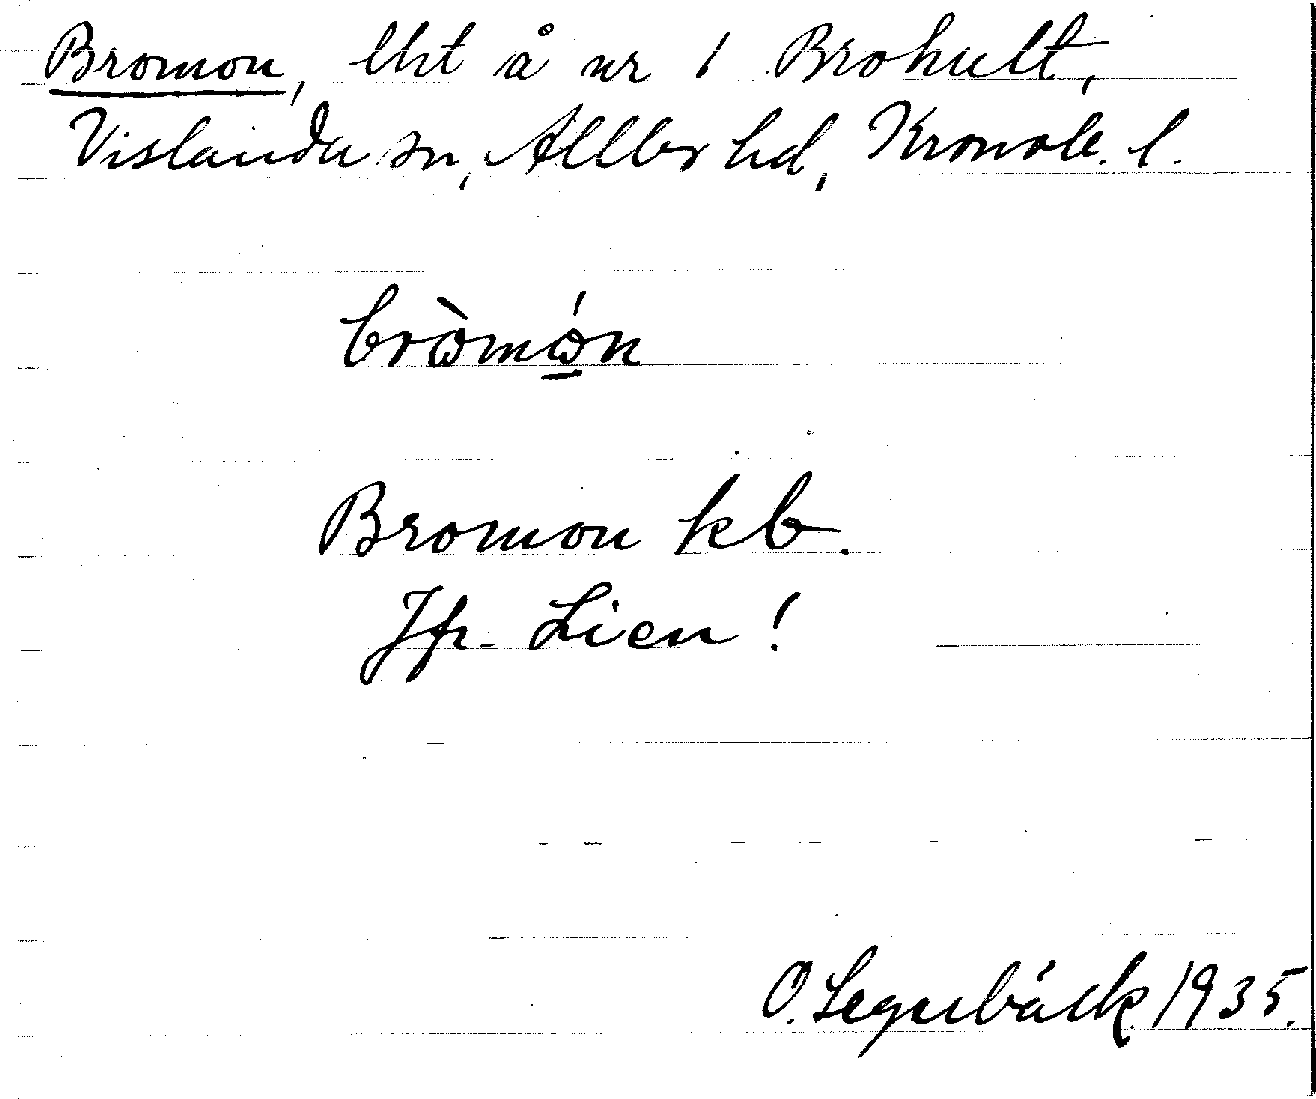 Bromon, lht å nr 1 Brohult,
Vislanda sn, Allbo hd, Kronob. l.
bròmón
Bromon kb.
Jfr. Lien!
O. Segerbäck 1935.